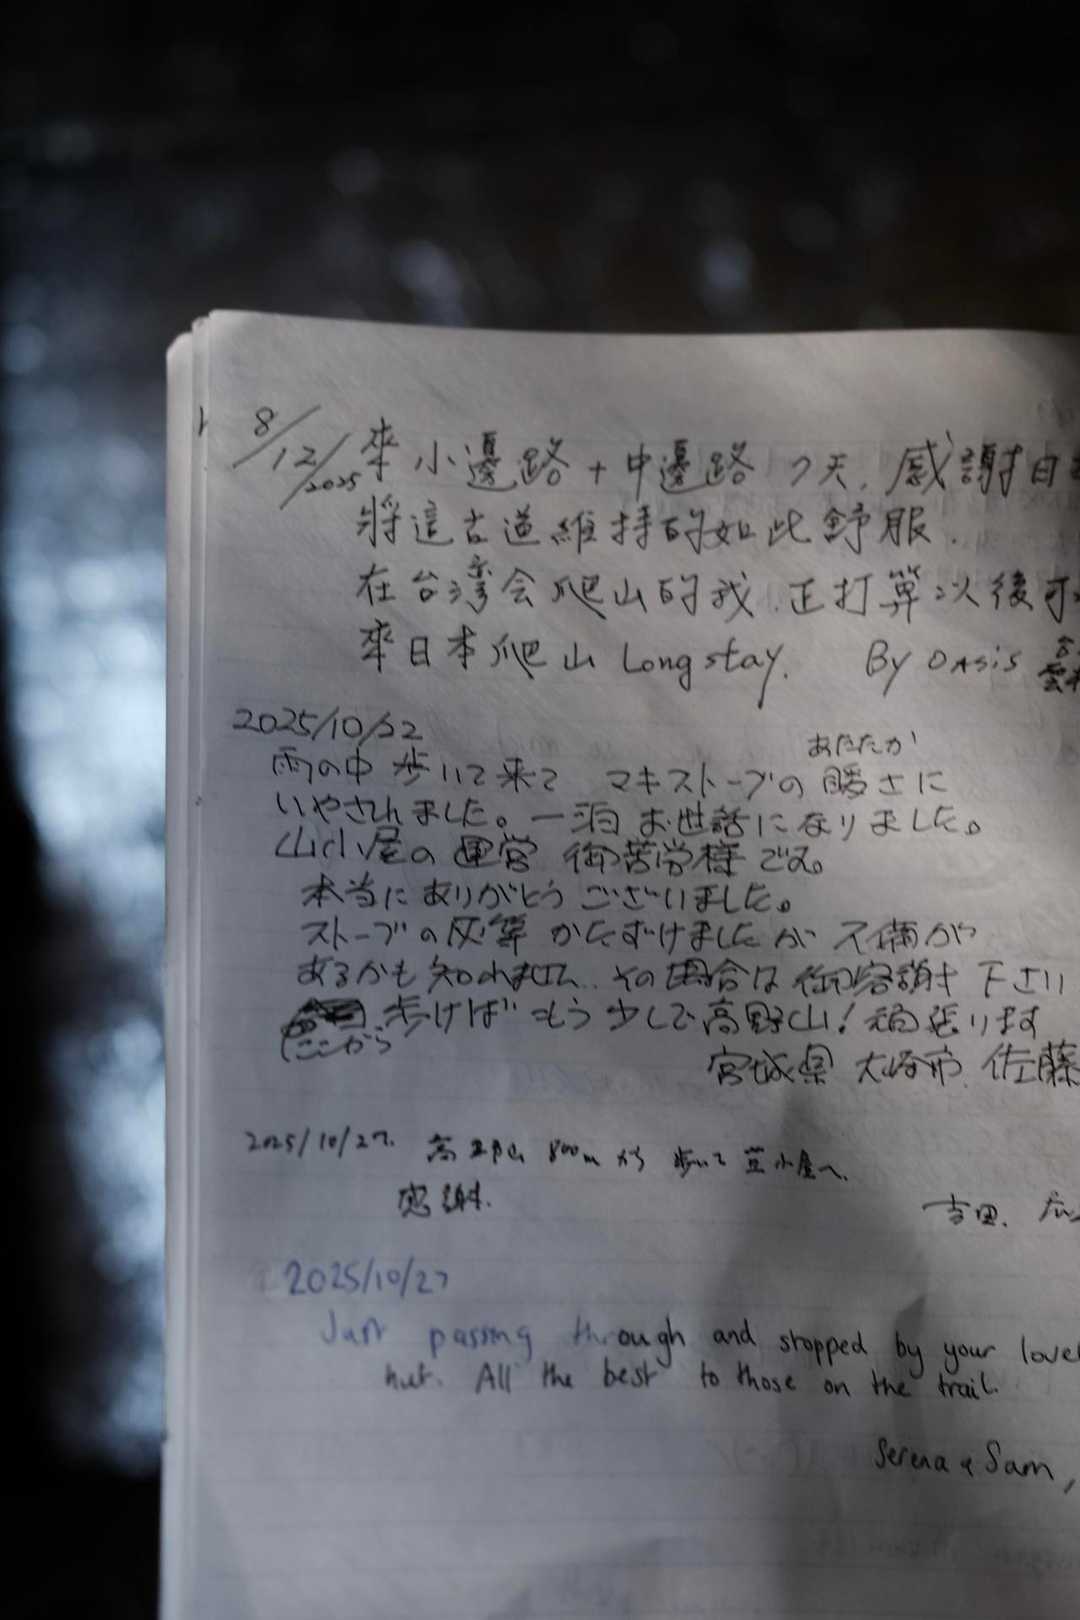 8/12/2025 來小邊路+中邊路 7天. 感謝日
將這古道維持的如此舒服.
在台湾会爬山的我. 正打算以後可
來日本爬山 Long stay. By OASiS
2025/10/22
あたたか
雨の中 歩いて来て マキストーブの 暖さに
いやされました。一泊 お世話になりました。
山小屋の 運営 御苦労様です。
本当に ありがとう ございました。
ストーブの灰等 かたずけましたが 不備が
あるかも 知れません. その場合は 御容謝 下さい
ここから 歩けば もう 少しで 高野山! 頑張ります
宮城県 大崎市 佐藤
2025/10/27. 高野山 800m から 歩いて 萱小屋へ.
感謝.
吉田.
2025/10/27
Just passing through and stopped by your
hut. All the best to those on the trail.
Serena & Sam,